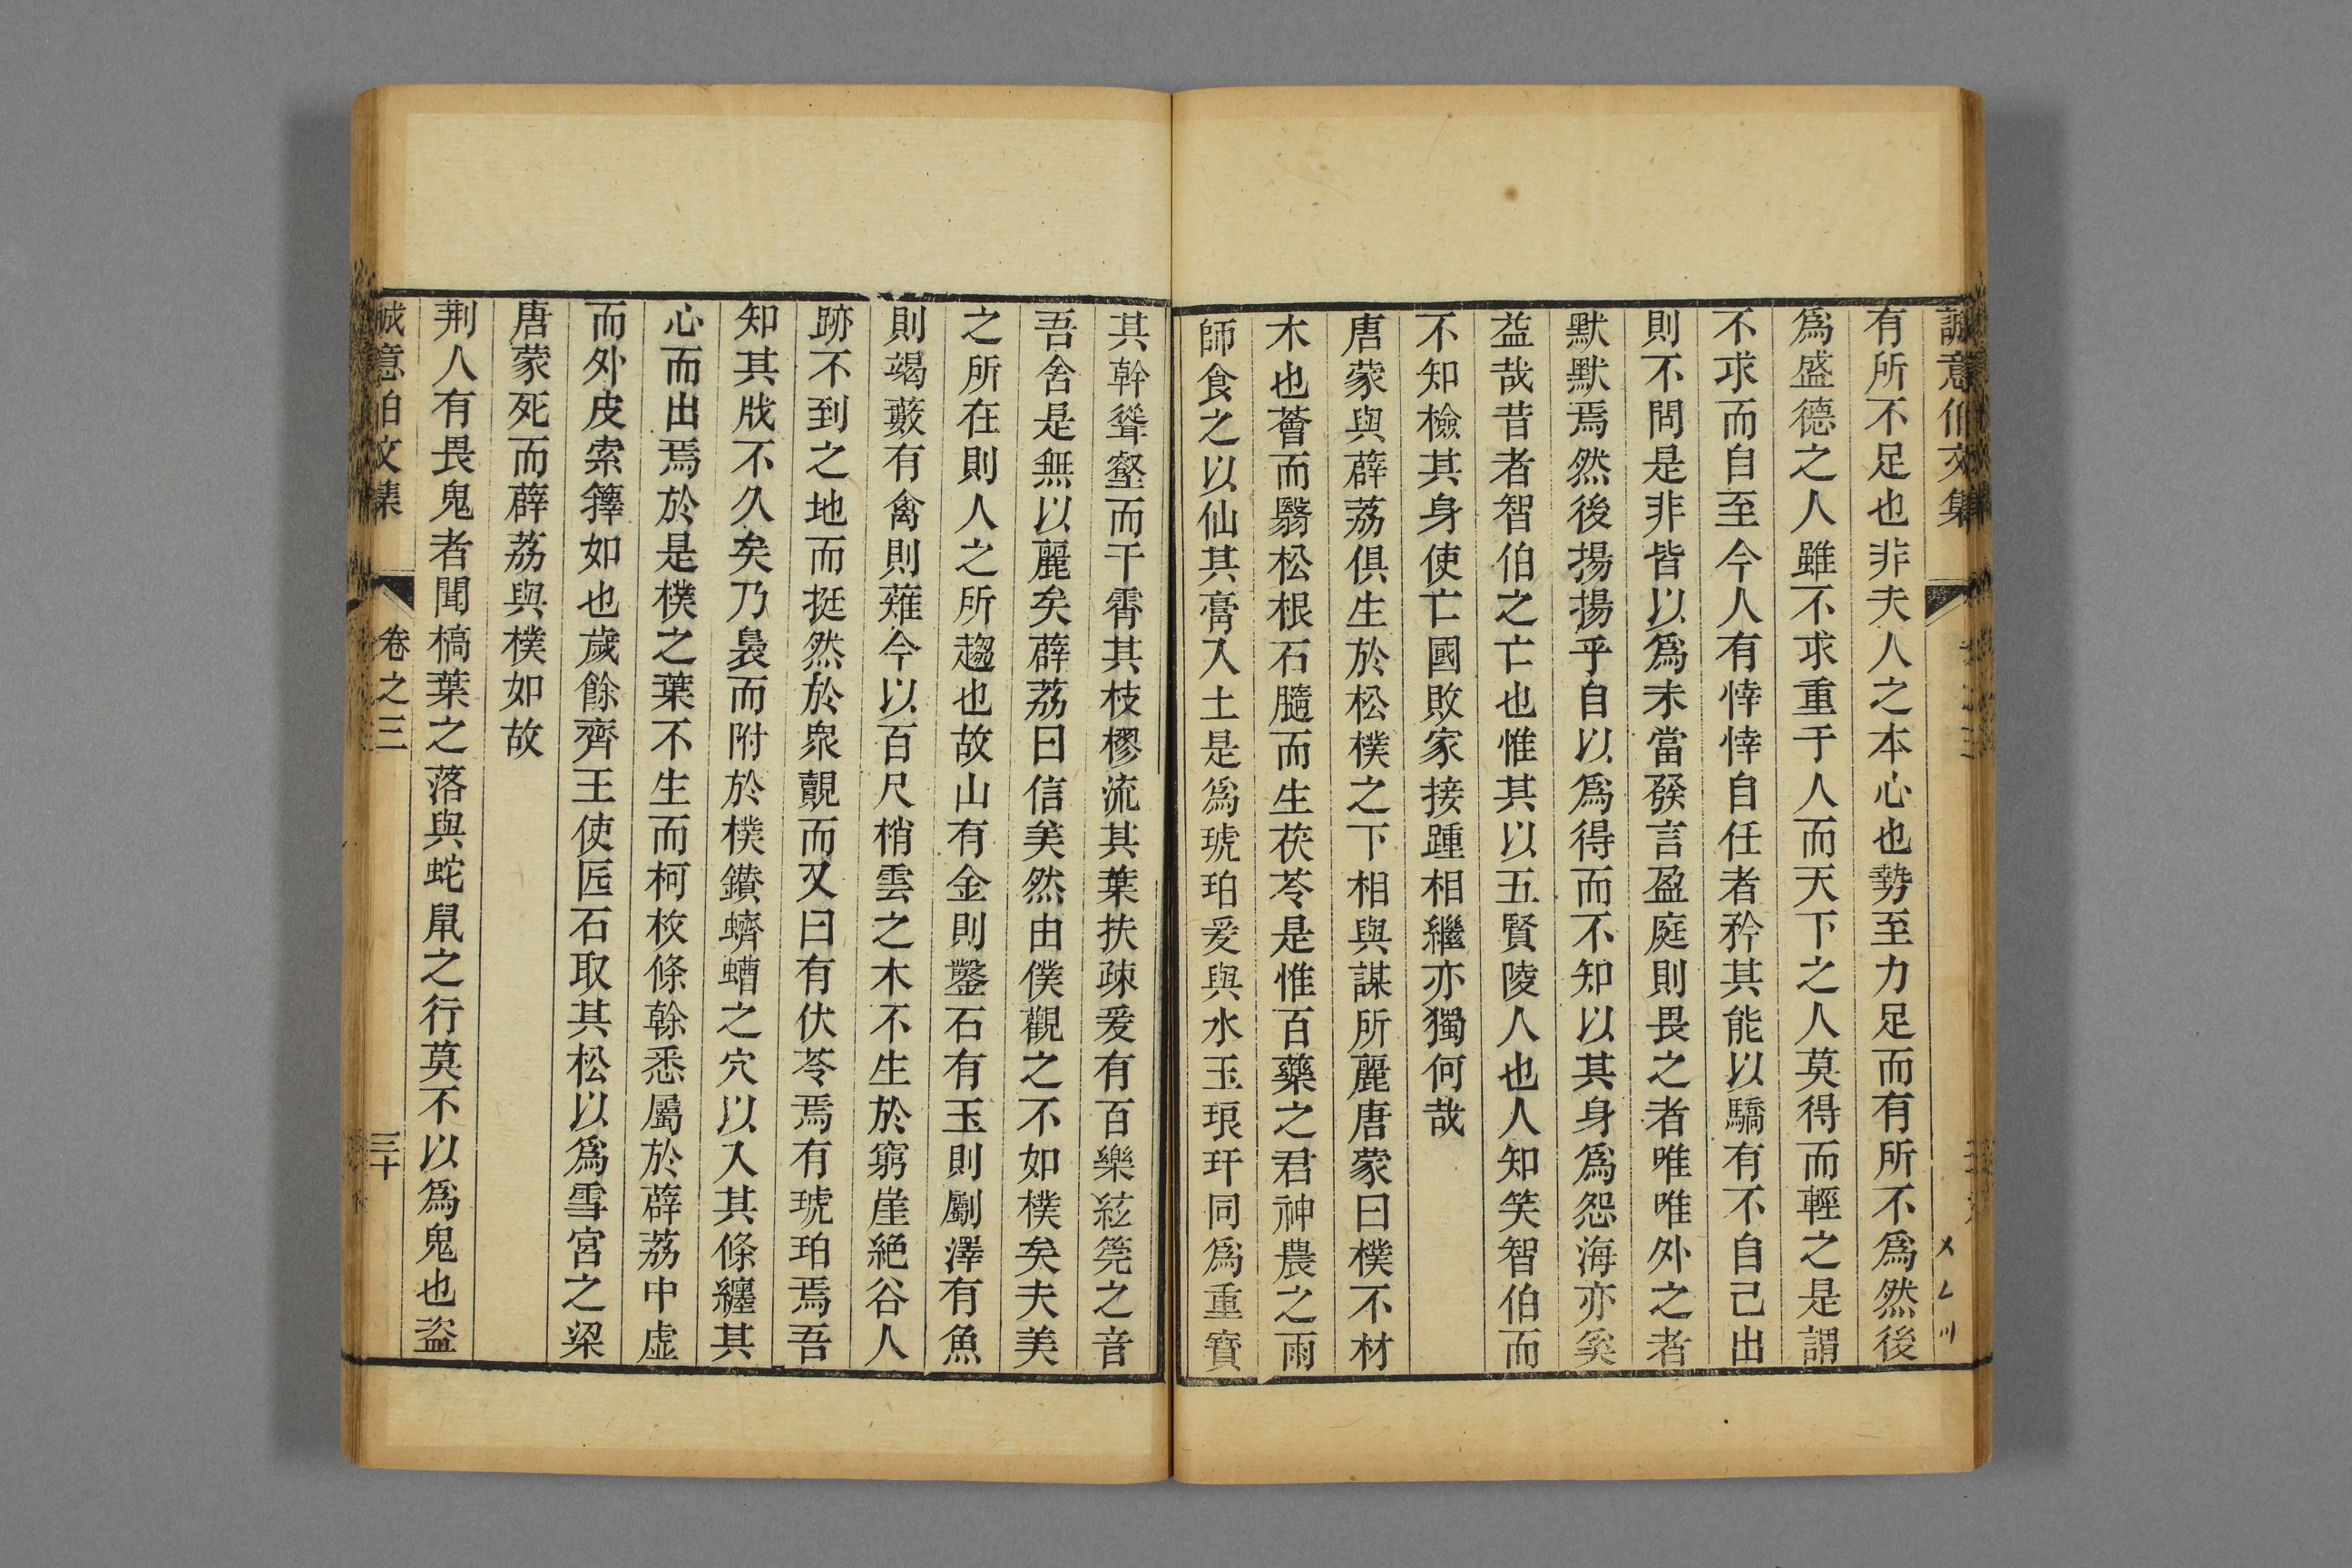 誠意伯文集
有所不足也非夫人之本心也勢至力足而有所不爲然後
爲盛德之人雖不求重于人而天下之人莫得而輕之是謂
不求而自至今人有悻悻自任者矜其能以驕有不自己出
則不問是非皆以爲未當發言盈庭則畏之者唯唯外之者
默默焉然後揚揚乎自以爲得而不知以其身爲怨海亦奚
益哉昔者智伯之亡也惟其以五賢陵人也人知笑智伯而
不知檢其身使亡國敗家接踵相繼亦獨何哉
唐蒙與薜荔俱生於松樸之下相與謀所麗唐蒙曰樸不材
木也薈而翳松根石髓而生茯苓是惟百藥之君神農之雨
師食之以仙其膏入土是爲琥珀爰與水玉琅玕同爲重寶
其幹聳壑而干霄其枝樛流其葉扶疎爰有百樂絃筦之音
吾舍是無以麗矣薜荔曰信美然由僕觀之不如樸矣夫美
之所在則人之所趨也故山有金則鑿石有玉則劚澤有魚
則竭藪有禽則薙今以百尺梢雲之木不生於窮崖絕谷人
跡不到之地而挺然於衆覿而又曰有伏苓焉有琥珀焉吾
知其戕不久矣乃裊而附於樸鑽蠐螬之穴以入其條纏其
心而出焉於是樸之葉不生而柯枚條榦悉屬於薜荔中虛
而外皮索籜如也歲餘齊王使匠石取其松以爲雪宮之梁
唐蒙死而薜荔與樸如故
荆人有畏鬼者聞槁葉之落與蛇鼠之行莫不以爲鬼也盜
誠意伯文集 卷之三 三十